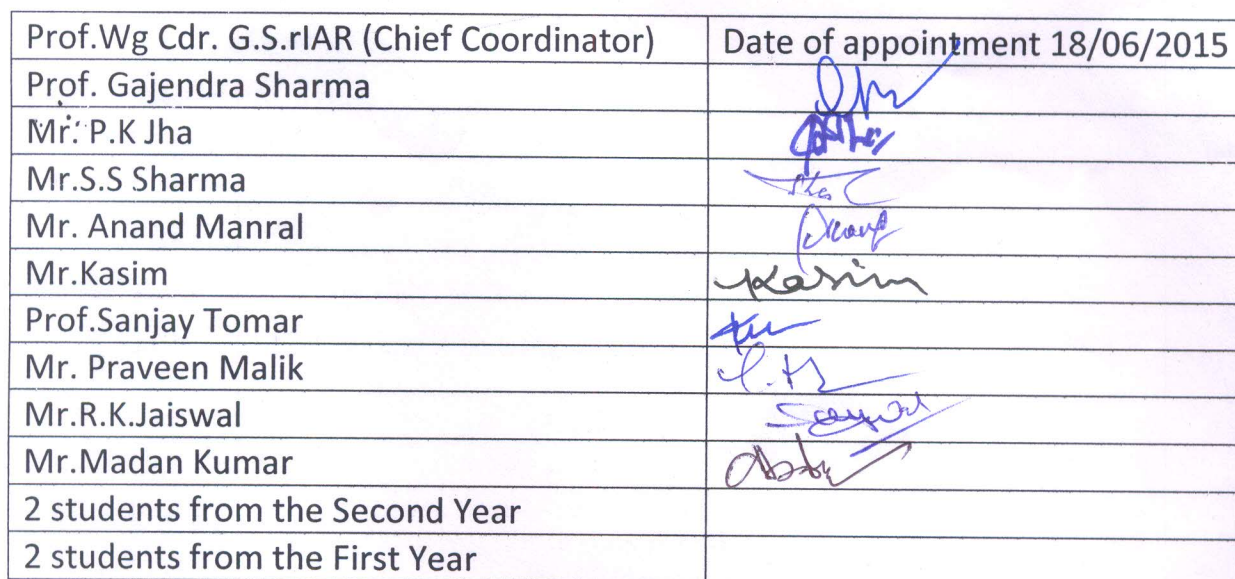 Prof.Wg Cdr. G.S.rIAR (Chief Coordinator) Date of appointment 18/06/2015
Prof. Gajendra Sharma
Mr. P.K Jha
Mr.S.S Sharma
Mr. Anand Manral
Mr.Kasim Kasim
Prof.Sanjay Tomar
Mr. Praveen Malik
Mr.R.K.Jaiswal
Mr.Madan Kumar
2 students from the Second Year
2 students from the First Year